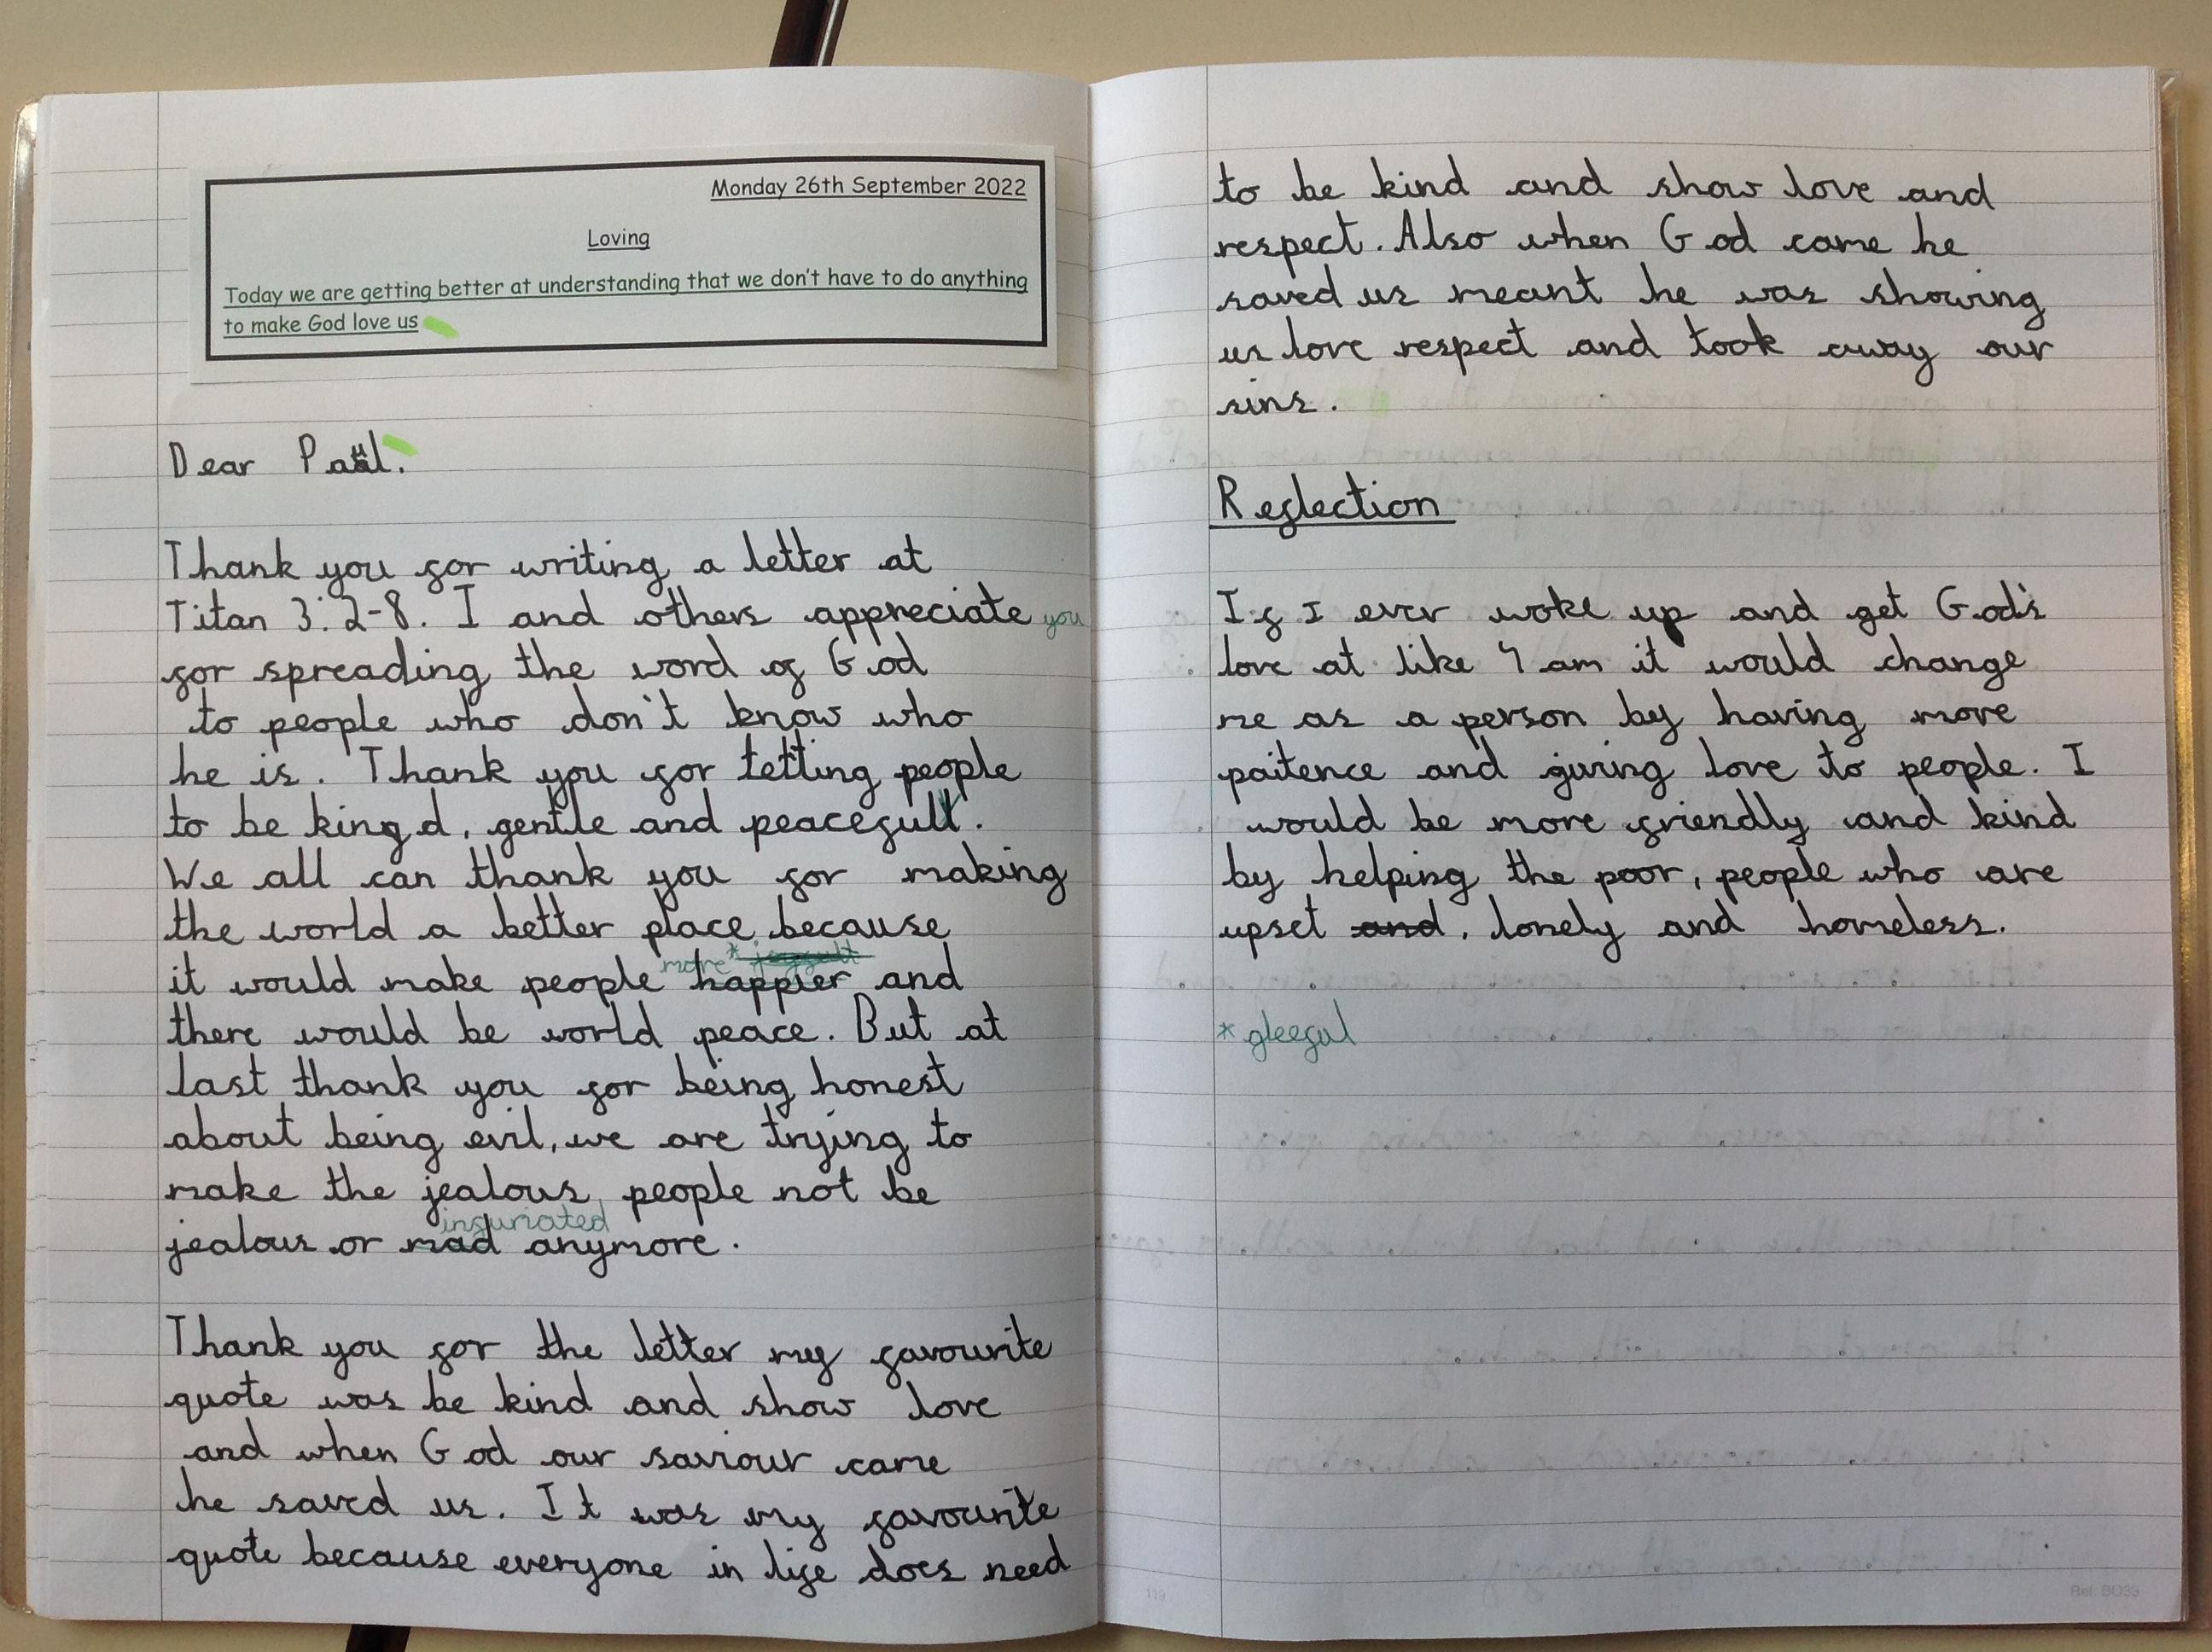 Monday 26th September 2022
Loving
Today we are getting better at understanding that we don't have to do anything
to make God love us
Dear Paul.
Thank you for writing a letter at
Titan 3:2-8. I and others appreciate you
for spreading the word of God
to people who don't know who
he is. Thank you for telling people
to be kingd, gentle and peacefull.
We all can thank you for making
the world a better place because
more *
it would make people happier and
there would be world peace. But at
last thank you for being honest
about being evil, we are trying to
make the jealous people not be
infuriated
jealous or mad anymore.
Thank you for the letter my favourite
quote was be kind and show love
and when God our saviour came
he saved us. It was my favourite
quote because everyone in life does need
to be kind and show love and
respect. Also when God came he
saved us meant he was showing
us love respect and took away our
sins.
Reflection
If I ever woke up and get God's
love at like 4 am it would change
me as a person by having more
paitence and giving love to people. I
would be more friendly and kind
by helping the poor, people who are
upset and, lonely and homeless.
* gleeful
119
Ref: BO33